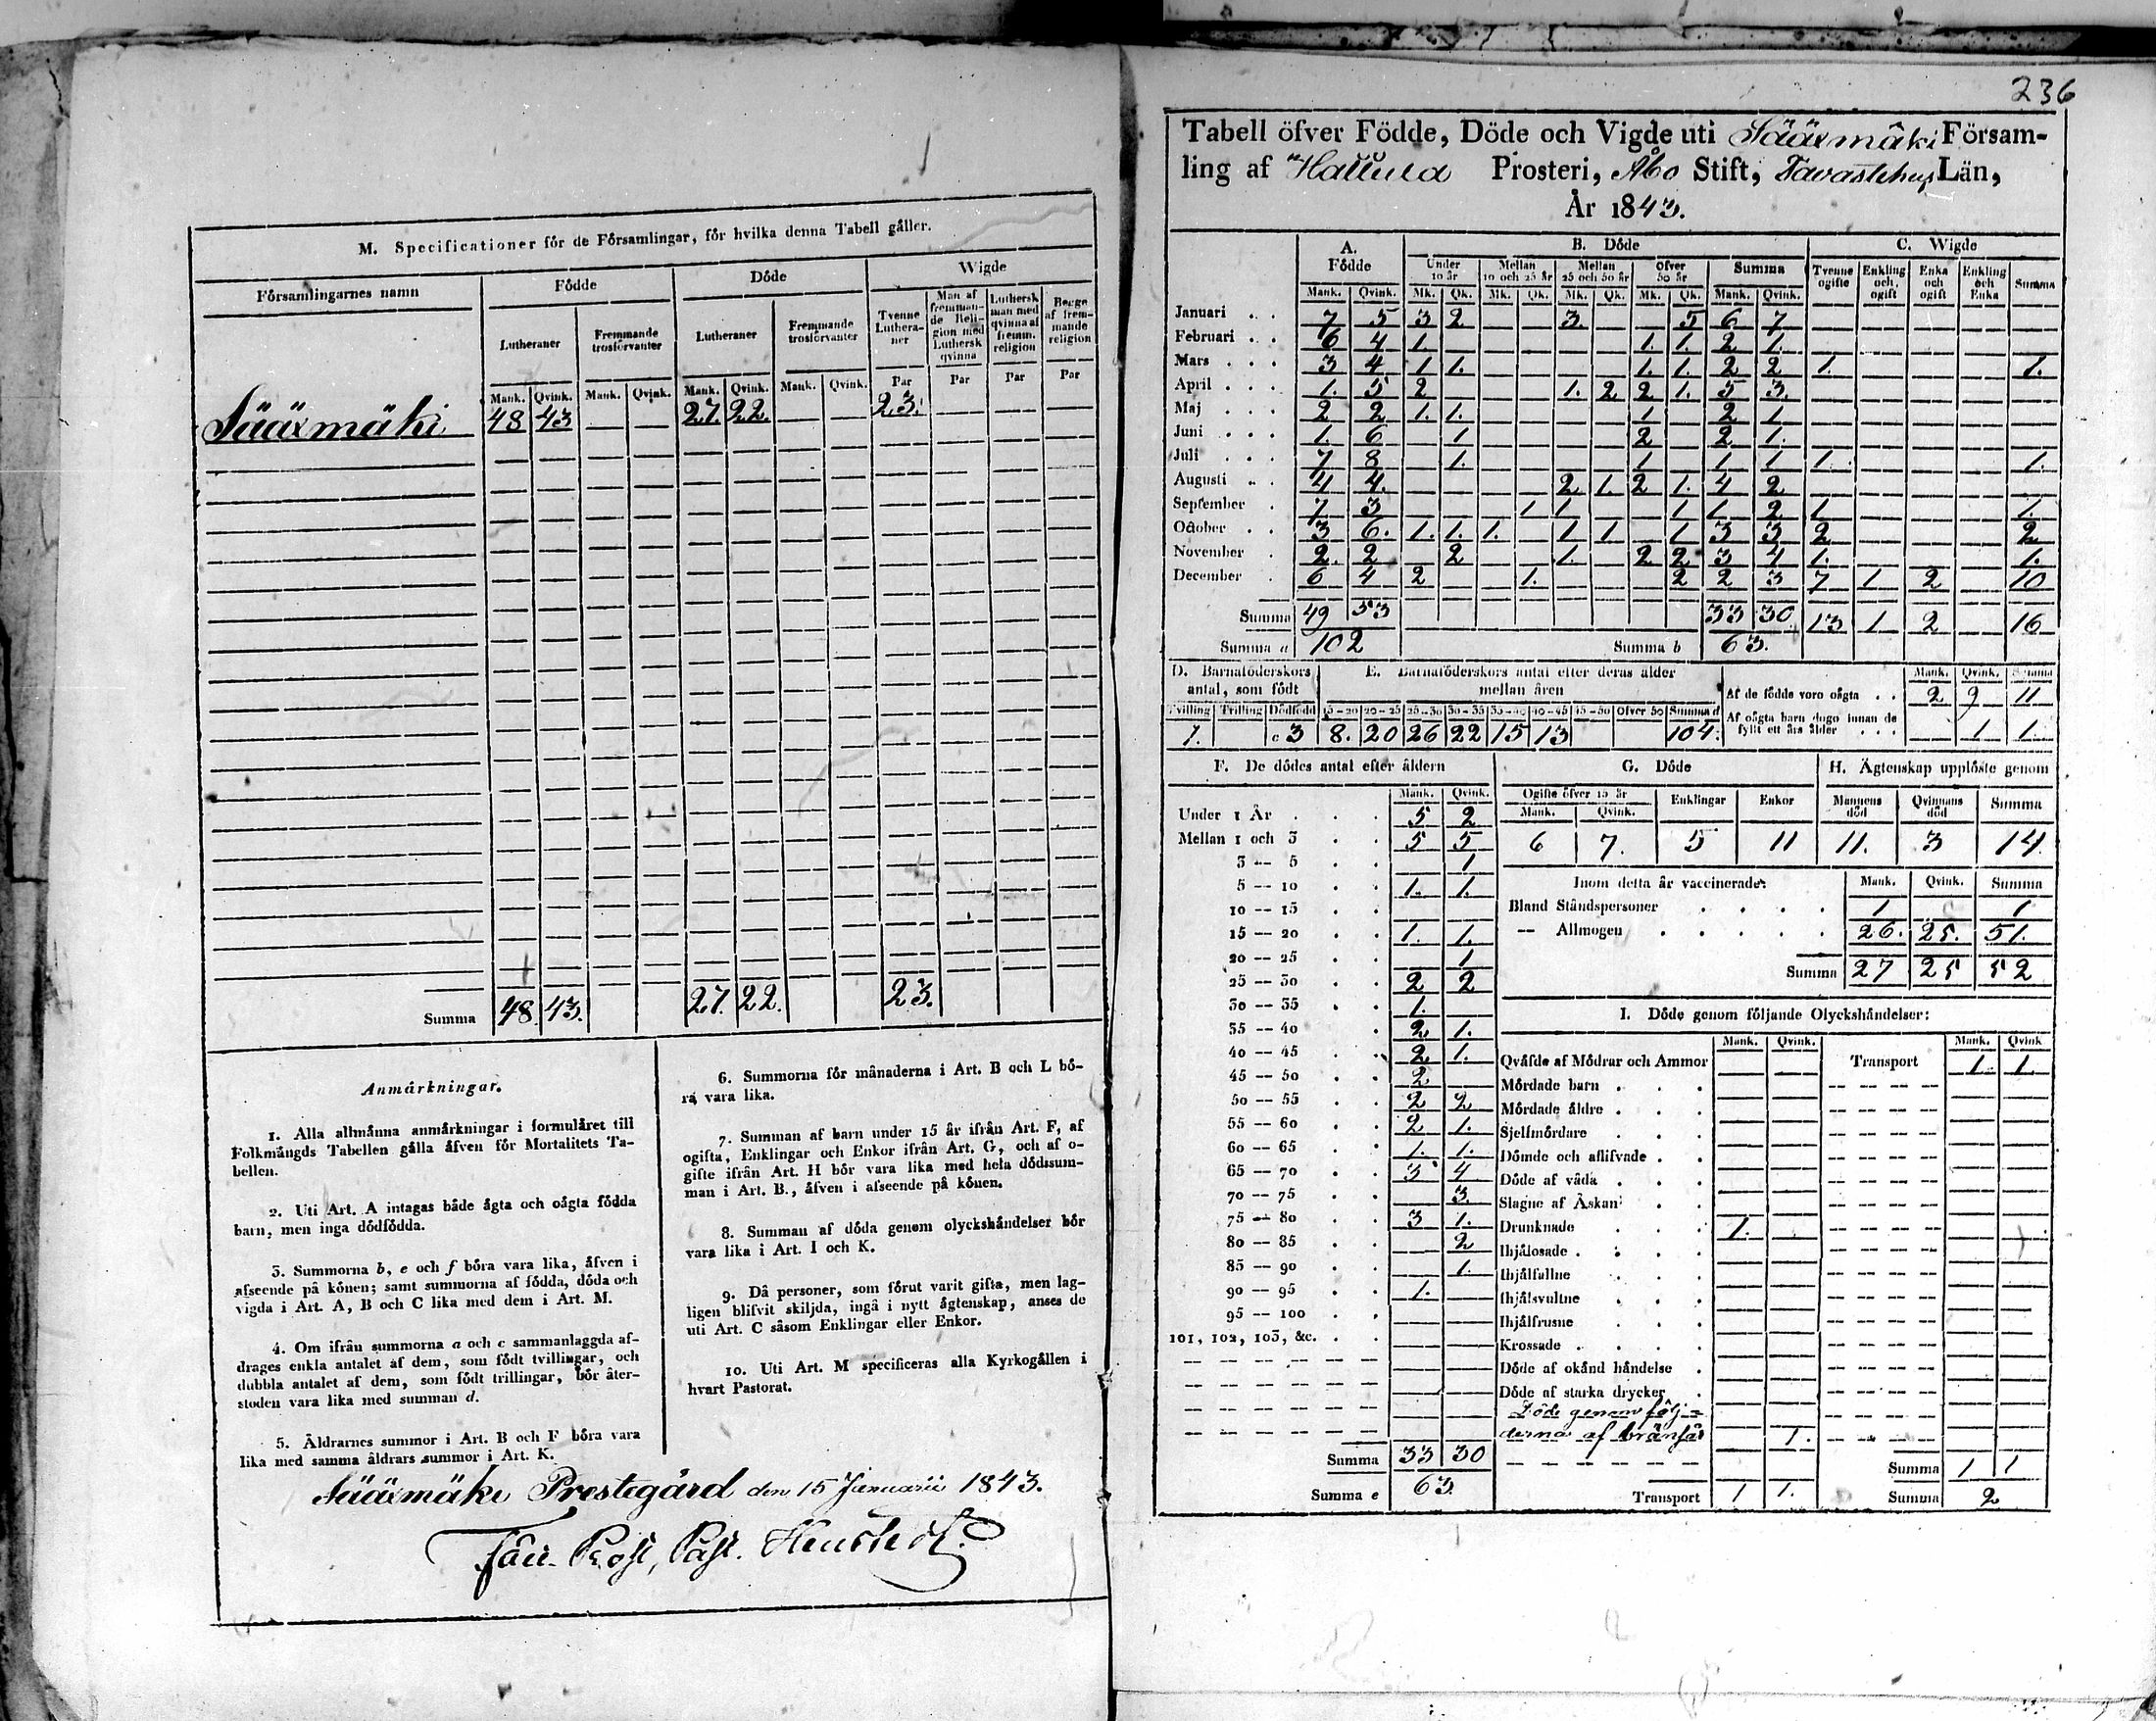 M. Specificationer för de Församlingar, för hvilka denna Tabell gäller.
Församlingarnes namn
Födde
Döde
Wigde
Lutheraner
Fremmande trosförvanter
Lutheraner
Fremmande trosförvanter
Tvenne Lutheraner
Man af fremmande Religion med Luthersk qvinna
Luthersk man med qvinna af fremm. religion
Begge af fremmande religion
Mank. Qvink. Mank. Qvink. Mank. Qvink. Mank. Qvink. Par Par Par Par
Sääxmäki 48 43 27. 22 23.
Summa 48. 43. 27. 22. 23.
Anmärkningar.
1. Alla allmänna anmärkningar i formuläret till
Folkmängds Tabellen gälla äfven för Mortalitets Ta-
bellen.
2. Uti Art. A intagas både ägta och oägta födda
barn, men inga dödfödda.
3. Summorna b, e och f böra vara lika, äfven i
afseende på könen; samt summorna af födda, döda och
vigda i Art. A, B och C lika med dem i Art. M.
4. Om ifrån summorna a och c sammanlaggda af-
drages enkla antalet af dem, som födt tvillingar, och
dubbla antalet af dem, som födt trillingar, bör åter-
stoden vara lika med summan d.
5. Åldrarnes summor i Art. B och F böra vara
lika med samma åldrars summor i Art. K.
6. Summorna för månaderna i Art. B och L bö-
ra vara lika.
7. Summan af barn under 15 år ifrån Art. F, af
ogifta, Enklingar och Enkor ifrån Art. G, och af o-
gifte ifrån Art. H bör vara lika med hela dödssum-
man i Art. B., äfven i afseende på könen.
8. Summan af döda genom olyckshändelser bör
vara lika i Art. I och K.
9. Då personer, som förut varit gifta, men lag-
ligen blifvit skiljda, ingå i nytt ägtenskap, anses de
uti Art. C såsom Enklingar eller Enkor.
10. Uti Art. M specificeras alla Kyrkogällen i
hvart Pastorat.
Sääxmäki Prestegård den 15 Januarii 1843.
236
Tabell öfver Födde, Döde och Vigde uti Sääxmäki Försam-
ling af Prosteri, Åbo Stift, Tavastehus Län,
År 1843.
A. Födde
B. Döde
C. Wigde
Under 10 år
Mellan 10 och 25 år
Mellan 25 och 50 år
Öfver 50 år
Summa
Tvenne ogifte
Enkling och ogift
Enka och ogift
Enkling och Enka
Summa
Mank. Qvink. Mk. Qk. Mk. Qk. Mk. Qk. Mk. Qk. Mank. Qvink.
Januari . . 7 5 3 2 3. 5 6 7
Februari . . 6 4 1. 1. 1. 2 1.
Mars . . . 3 4 1 1. 1. 1. 2 2 1. 1.
April . . . 1. 5 2 1. 2 2 1. 5 3.
Maj . . . 2 2 1. 1. 1 2 1
Juni . . . 1. 6 1 2 2 1.
Juli . . . 7 8 1. 1 1 1 1. 1.
Augusti . . 4 4. 2 1. 2 1. 4 2
September . 7 3 1 1 1 1 2 1 1.
October . . 3 6. 1. 1. 1. 1 1 1 3 3 2 2
November . 2. 2 2 1. 2 2 3 4 1. 1.
December . 6 4 2 1. 2 2 3 7 1 2 10
Summa 49 53 33 30 13 1 2 16
Summa a 102 Summa b 63.
D. Barnaföderskors antal, som födt
E. Barnaföderskors antal efter deras ålder mellan åren
Tvilling Trilling Dödfödd 15-20 20-25 25-30 30-35 35-40 40-45 45-50 Öfver 50 Summa d
1. c 3 8. 20 26 22 15 13 104.
Mank. Qvink. Summa
Af de födde voro oägta . . 2 9 11
Af oägta barn dogo innan de
fyllt ett års ålder . . . 1 1.
F. De dödes antal efter åldern
Mank. Qvink.
Under 1 År . . . 5 2
Mellan 1 och 3 . . 5 5
3 -- 5 . . 1
5 -- 10 . . 1. 1.
10 -- 15 . .
15 -- 20 . . 1. 1.
20 -- 25 . . 1
25 -- 30 . . 2 2
30 -- 35 . . 1.
35 -- 40 . . 2 1.
40 -- 45 . . 2 1.
45 -- 50 . . 2
50 -- 55 . . 2 2
55 -- 60 . . 2 1.
60 -- 65 . . 1. 1.
65 -- 70 . . 3 4
70 -- 75 . . 3.
75 -- 80 . . 3 1.
80 -- 85 . . 2
85 -- 90 . . 1.
90 -- 95 . . 1.
95 -- 100 . .
101, 102, 103, &c. . .
Summa 33 30
Summa e 63.
G. Döde
Ogifte öfver 15 år
Mank. Qvink.
Enklingar
Enkor
6 7. 5 11
H. Ägtenskap upplöste genom
Mannens död
Qvinnans död
Summa
11. 3 14
Inom detta år vaccinerade: Mank. Qvink. Summa
Bland Ståndspersoner . . . . 1 1
-- Allmogen . . . . . 26. 25. 51.
Summa 27 25 52
I. Döde genom följande Olyckshändelser:
Mank. Qvink. Mank. Qvink
Qväfde af Mödrar och Ammor Transport 1. 1
Mördade barn . . .
Mördade äldre . . .
Sjelfmördare . .
Dömde och aflifvade . .
Döde af våda . . .
Slagne af Åskan . .
Drunknade . . . 1.
Ihjälosade . . . .
Ihjälfallne . . .
Ihjälsvultne . . .
Ihjälfrusne . . .
Krossade . . . .
Döde af okänd händelse .
Döde af starka drycker .
Döde genom följ-
derna af brännsår 1.
Summa 1 1
Transport 1 1. Summa 2